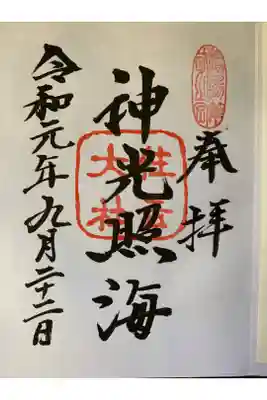 奉拝
神光照海
住吉
大社
令和元年九月二十二日